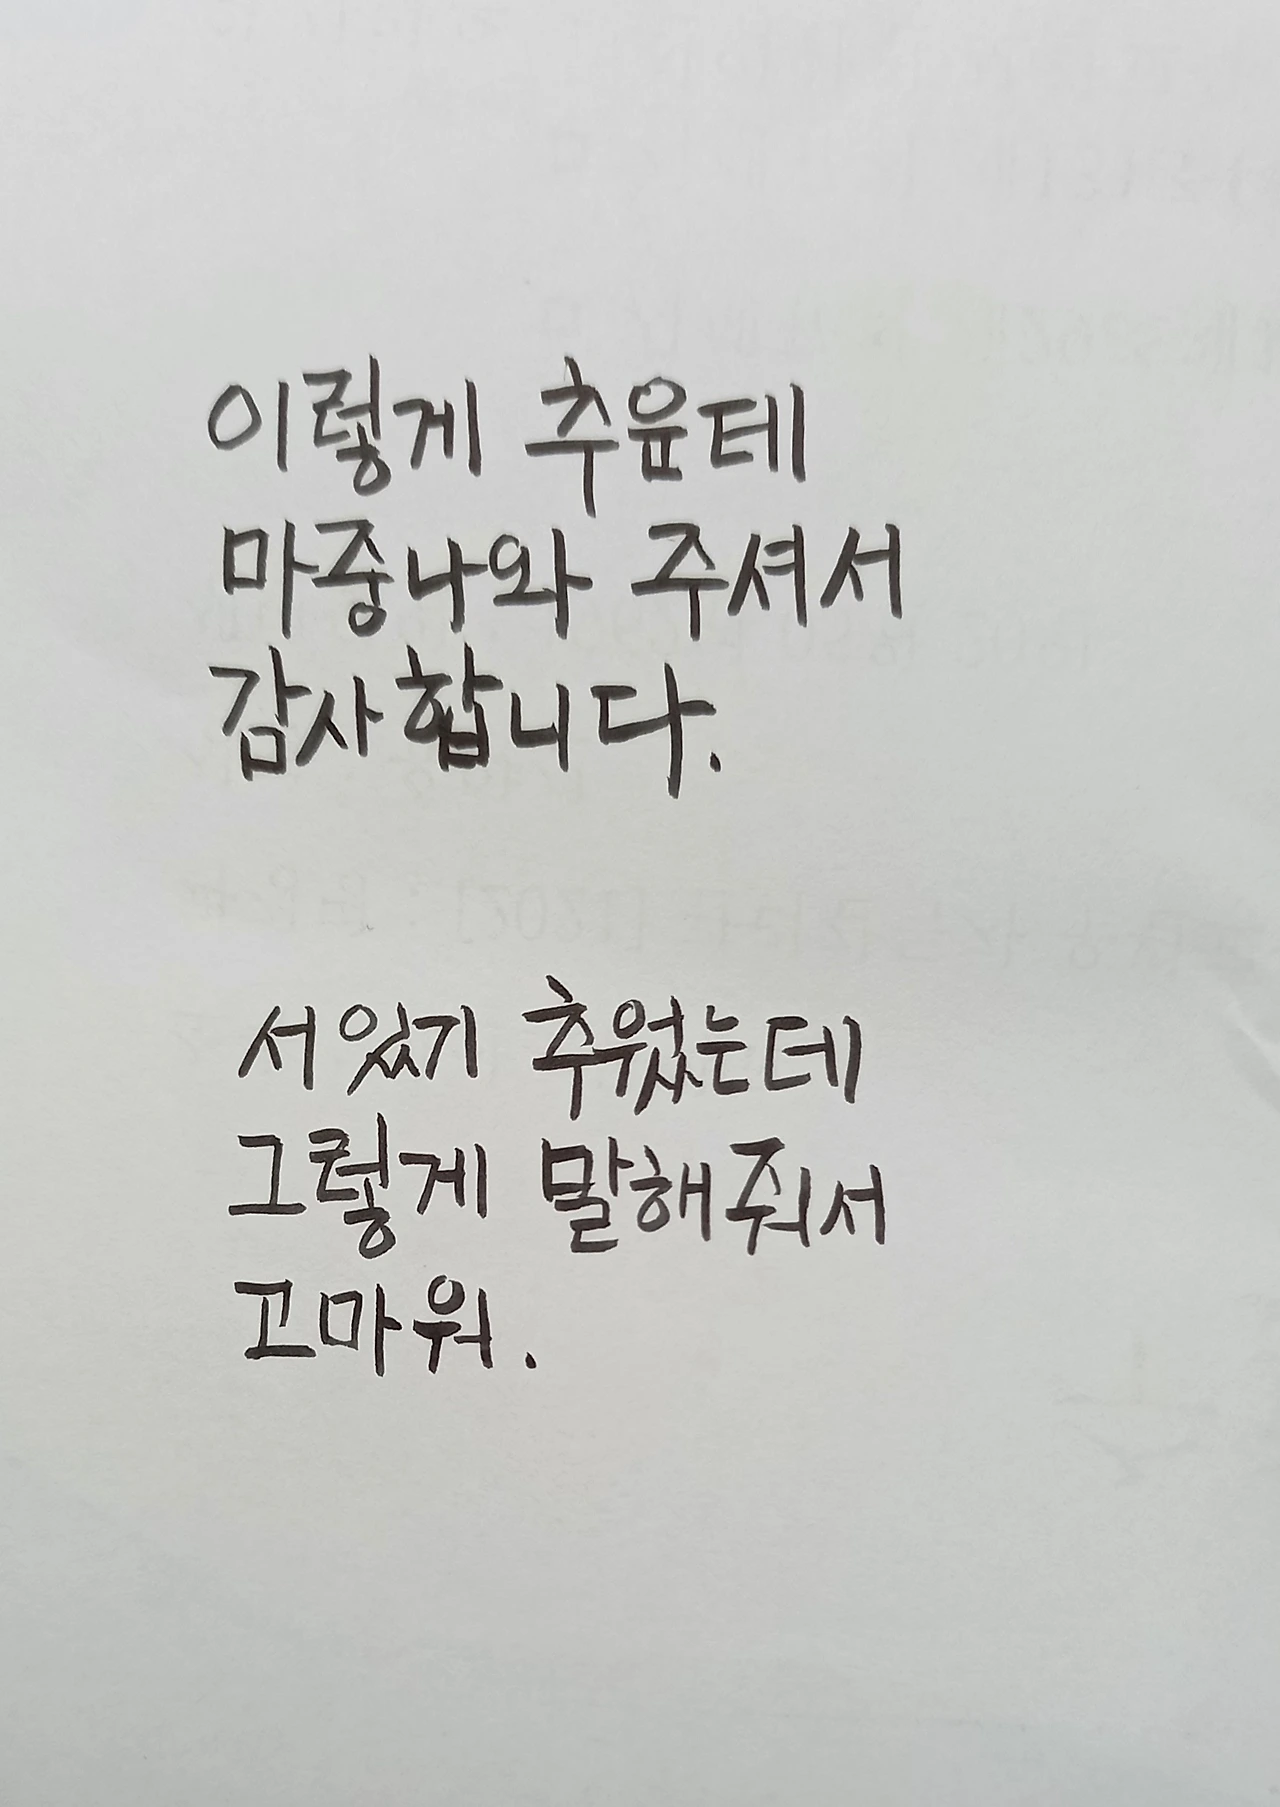 이렇게 추운데
마중나와 주셔서
감사합니다.
서있기 추웠는데
그렇게 말해줘서
고마워.